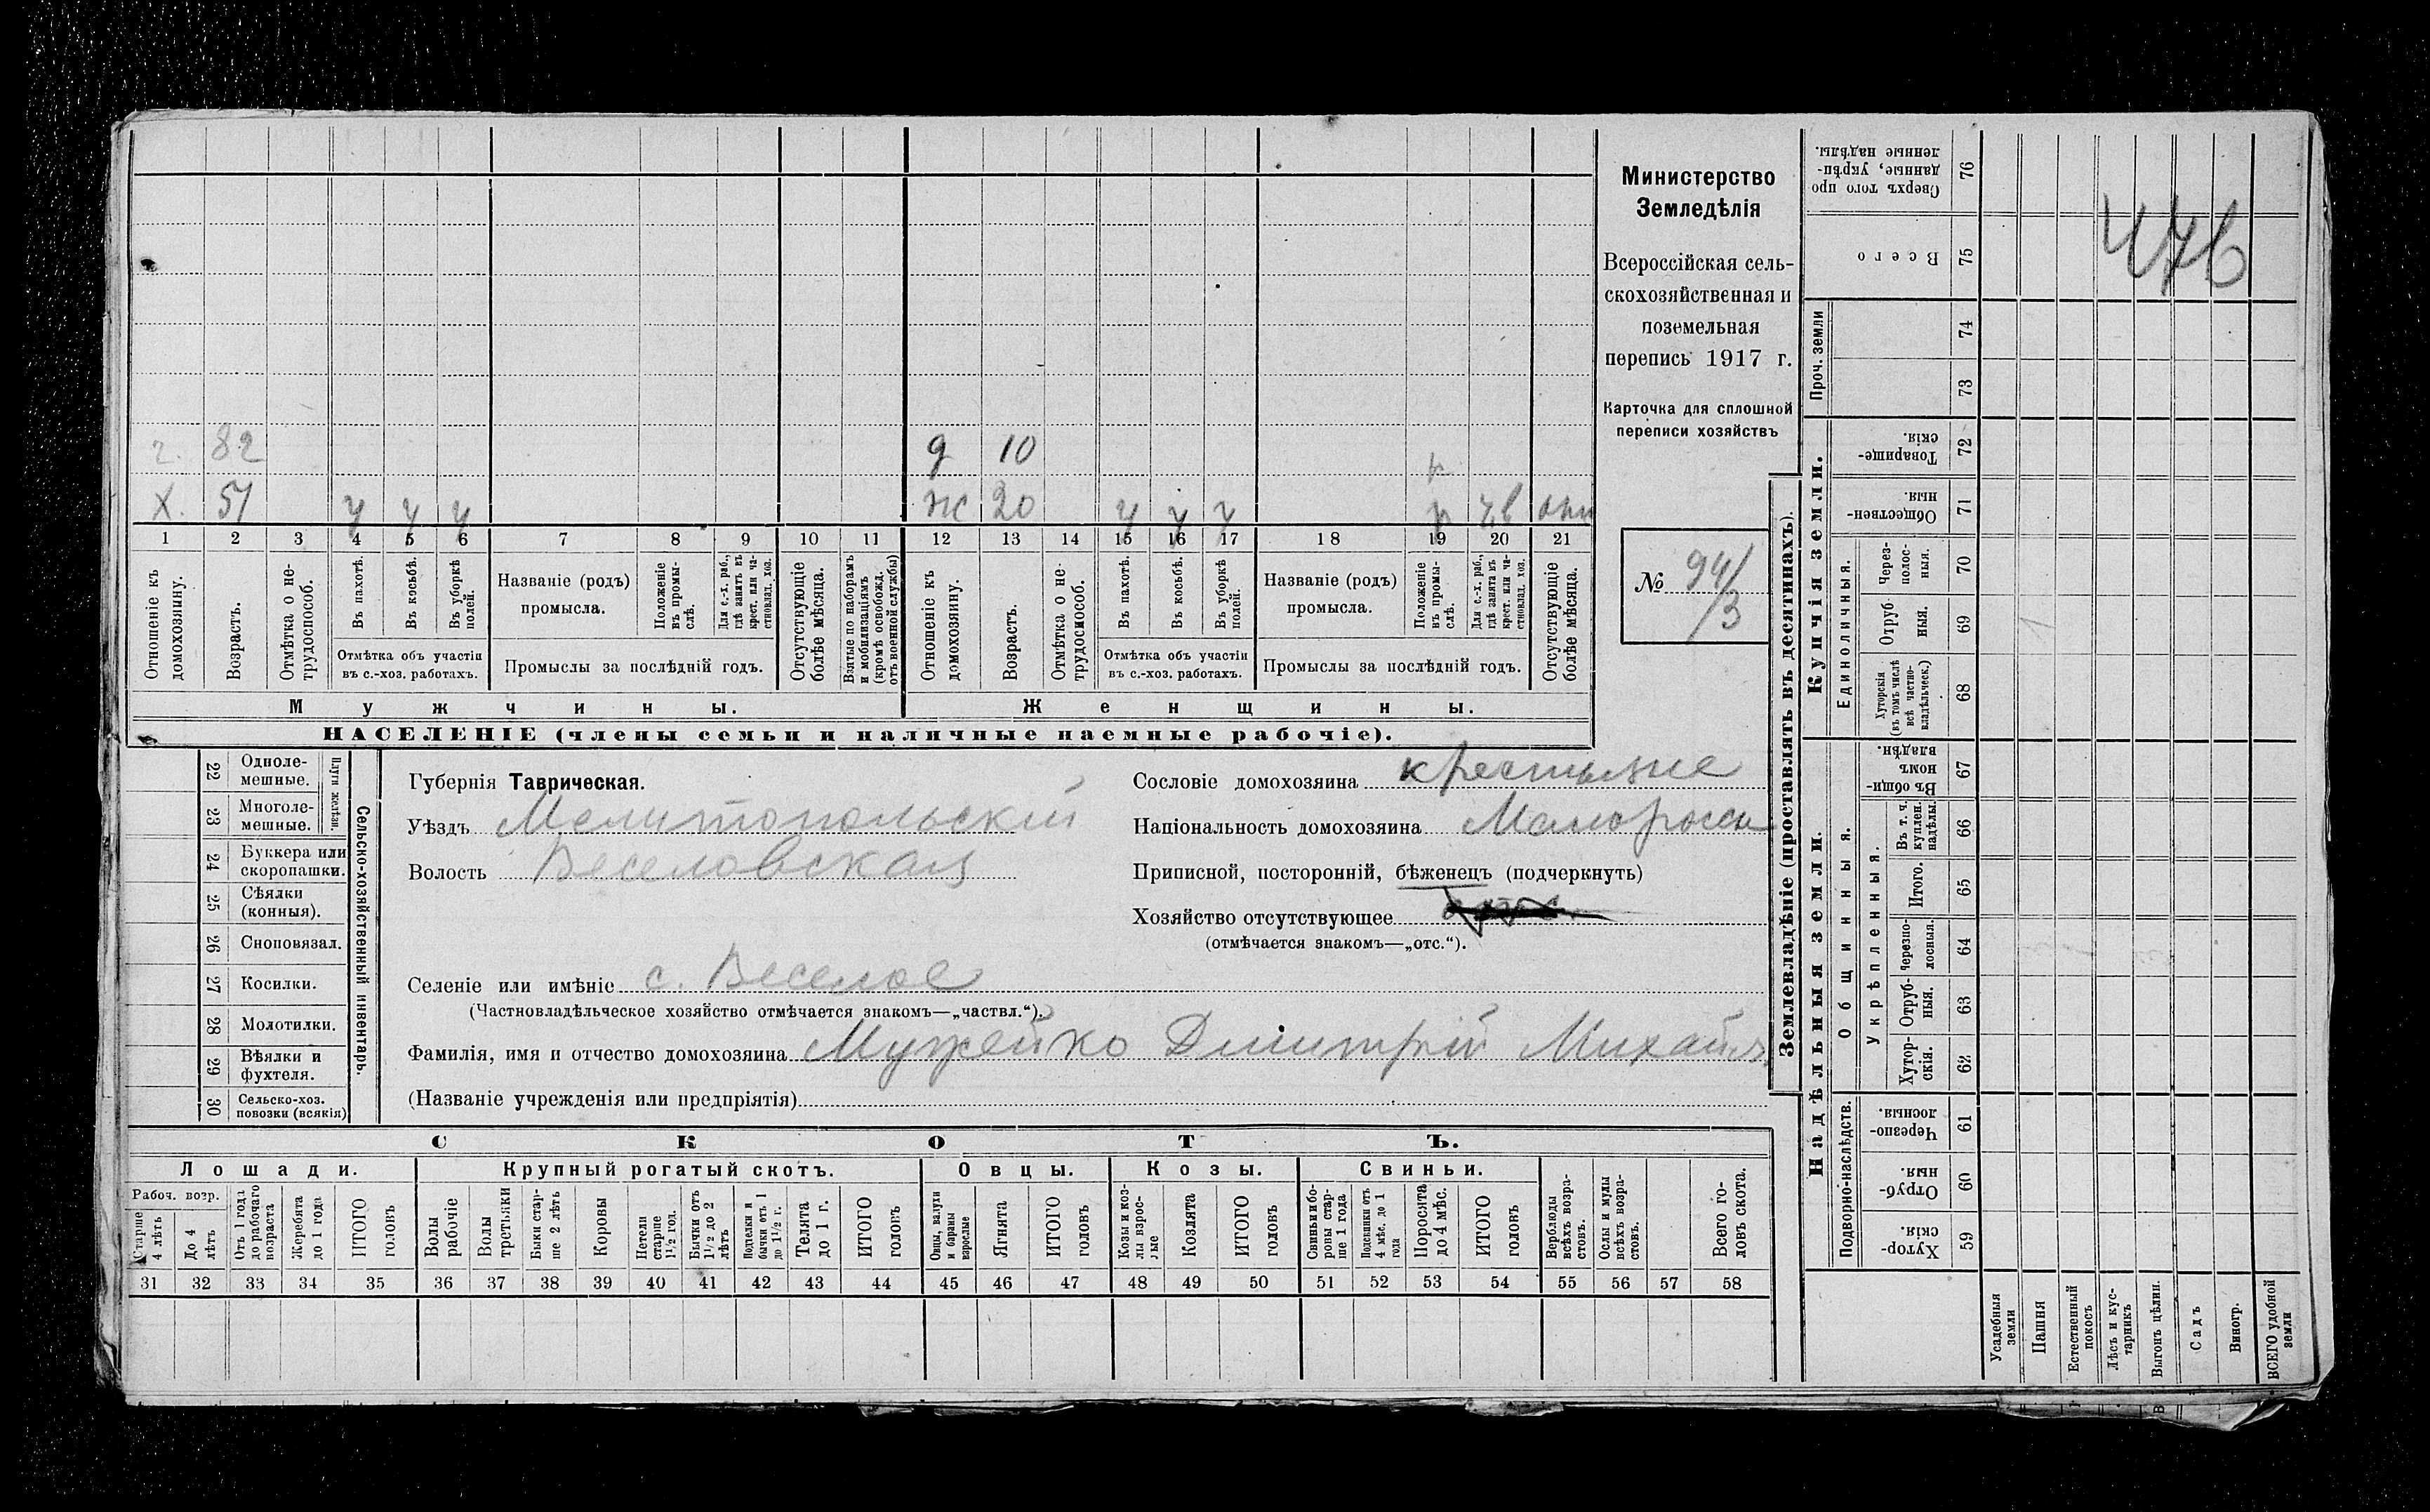 Министерство
Земледѣлія
Всероссійская сель-
скохозяйственная и
поземельная
перепись 1917 г.
Карточка для сплошной
переписи хозяйствъ
№ 94/3
476
г. 82
д 10
х. 51 у у у
ж 20 у у у
1 2 3 4 5 6 7 8 9 10 11 12 13 14 15 16 17 18 19 20 21
Отношеніе къ домохозяину.
Возрастъ.
Отмѣтка о не-трудоспособ.
Въ пахотѣ.
Въ косьбѣ.
Въ уборкѣ полей.
Отмѣтка объ участіи
въ с.-хоз. работахъ.
Названіе (родъ)
промысла.
Положеніе въ промы-слѣ.
Для с.-х. раб., гдѣ занятъ въ крест. или ча-стновлад. хоз.
Промыслы за послѣдній годъ.
Отсутствующіе болѣе мѣсяца.
Взятые по наборамъ и мобилизаціямъ (кромѣ освобожд. отъ военной службы)
Отношеніе къ домохозяину.
Возрастъ.
Отмѣтка о не-трудосмособ.
Въ пахотѣ.
Въ косьбѣ.
Въ уборкѣ полей.
Отмѣтка объ участіи
въ с.-хоз. работахъ.
Названіе (родъ)
промысла.
Положеніе въ промы-слѣ.
Для с.-х. раб., гдѣ занята въ крест. или ча-стновлад. хоз.
Промыслы за послѣдній годъ.
Отсутствующіе болѣе мѣсяца.
Мужчины.
Женщины.
НАСЕЛЕНІЕ (члены семьи и наличные наемные рабочіе).
22 Одноле-мешные.
23 Многоле-мешные.
Плуги желѣзн.
24 Буккера или скоропашки.
25 Сѣялки (конныя).
26 Сноповязал.
27 Косилки.
28 Молотилки.
29 Вѣялки и фухтеля.
30 Сельско-хоз. повозки (всякія)
Сельско-хозяйственный инвентарь.
Губернія Таврическая.
Уѣздъ Мелитопольскій
Волость Веселовская
Сословіе домохозяина крестьяне
Національность домохозяина Малоросси
Приписной, посторонній, бѣженецъ (подчеркнуть)
Хозяйство отсутствующее
(отмѣчается знакомъ—„отс.“).
Селеніе или имѣніе с. Веселое
(Частновладѣльческое хозяйство отмѣчается знакомъ—„частвл.“).
Фамилія, имя и отчество домохозяина Мужейко Дмитрій Михайл.
(Названіе учрежденія или предпріятія)
СКОТЪ.
Лошади.
Крупный рогатый скотъ.
Овцы.
Козы.
Свиньи.
Рабоч. возр.
Старше 4 лѣтъ
До 4 лѣтъ
Отъ 1 года до рабочаго возраста
Жеребята до 1 года
ИТОГО головъ
Волы рабочіе
Волы третьяки
Быки стар-ше 2 лѣтъ
Коровы
Нетели старше 1½ год.
Бычки отъ 1½ до 2 лѣтъ
Подтелки и бычки отъ 1 до 1½ г.
Телята до 1 г.
ИТОГО головъ
Овцы, валухи и бараны взрослые
Ягнята
ИТОГО головъ
Козы и коз-лы взрос-лые
Козлята
ИТОГО головъ
Свиньи и бо-ровы стар-ше 1 года
Подсвинки отъ 4 мѣс. до 1 года
Поросята до 4 мѣс.
ИТОГО головъ
Верблюды всѣхъ возра-стовъ.
Ослы и мулы всѣхъ возра-стовъ.
Всего го-ловъ скота.
31 32 33 34 35 36 37 38 39 40 41 42 43 44 45 46 47 48 49 50 51 52 53 54 55 56 57 58
Землевладѣніе (проставлять въ десятинахъ).
Купчія земли.
Надѣльныя земли.
Проч. земли
Единоличныя.
Общинныя.
Укрѣпленныя.
Подворно-наслѣдств.
76 Сверхъ того про данные, укрѣп-ленные надѣлы.
75 Всего
74
73
72 Товарище-скія.
71 Обществен-ныя.
70 Черезполос-ныя.
69 Отруб-ныя.
68 Хуторскія (въ томъ числѣ всѣ частно-владѣльческ.)
67 Въ общи-номъ владѣн.
66 Въ т. ч. куплен. надѣлы.
65 Итого.
64 Черезпо-лосныя.
63 Отруб-ныя.
62 Хутор-скія.
61 Черезпо-лосныя.
60 Отруб-ныя.
59 Хутор-скія.
Усадебныя земли
Пашня
Естественный покосъ
Лѣсъ и кус-тарникъ
Выгонъ цѣлин.
Садъ
Виногр.
ВСЕГО удобной земли